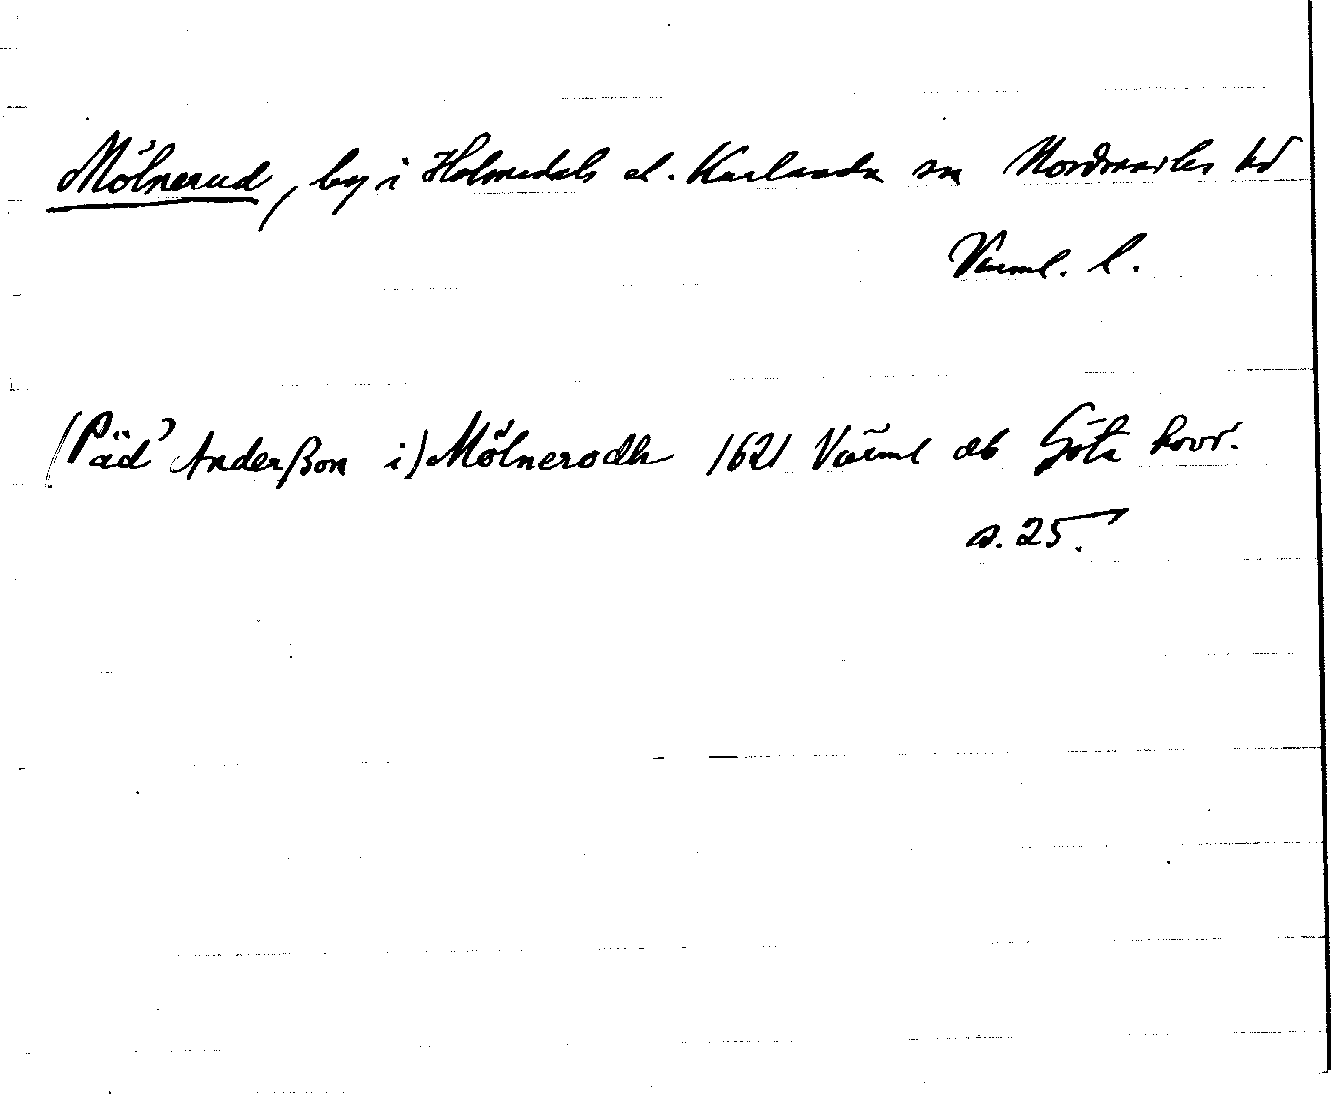 Mölnerud, by i Holmedals el. Karlanda sn Nordmarks hd
Värml. l.
(Päd' Anderßon i) Mölnerodh 1621 Värml db Göta hovr.
s. 25.